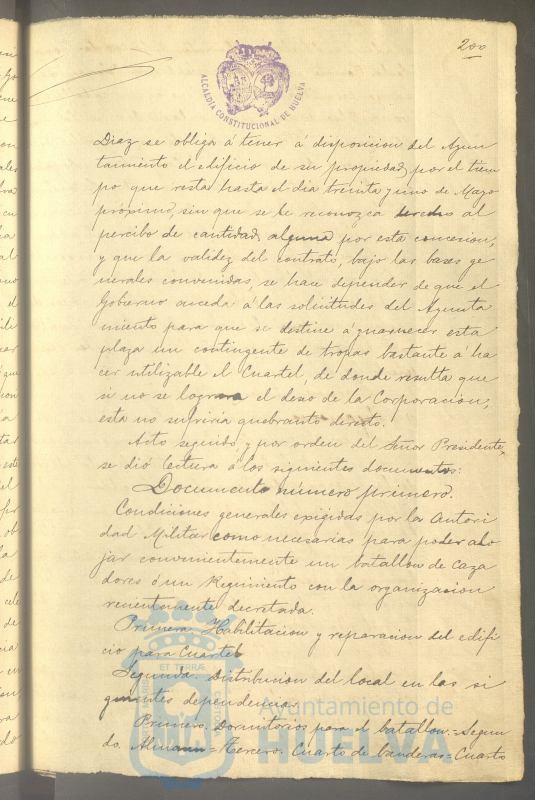 200
ALCALDÍA CONSTITUCIONAL DE HUELVA
Diaz se obliga á tener á disposicion del Ayun
tamiento el edificio de su propiedad, por el tiem
po que resta hasta el dia treinta y uno de Mayo
próximo, sin que se le reconozca derecho al
percibo de cantidad alguna por esta concesion,
y que la validez del contrato, bajo las bases ge
nerales convenidas, se hace depender de que el
Gobierno acceda á las solicitudes del Ayunta
miento para que se destine á guarnecer esta
plaza un contingente de tropas bastante á ha
cer utilizable el Cuartel, de donde resulta que
si no se lograra el deseo de la Corporacion,
esta no sufriria quebranto directo.
Acto seguido y por orden del Señor Presidente,
se dió lectura á los siguientes documentos:
Documento número primero.
Condiciones generales exigidas por la Autori
dad Militar como necesarias para poder alo
jar convenientemente un batallon de Caza
dores ó un Regimiento con la organizacion
recientemente decretada.
Primera. Habilitacion y reparacion del edifi
cio para Cuartel
Segunda. Distribucion del local en las si
guientes dependencias
Primero. Dormitorios para el batallon.=Segun
do. Almacen=Tercero. Cuarto de banderas=Cuarto
ET TERRÆ
Ayuntamiento de
HUELVA